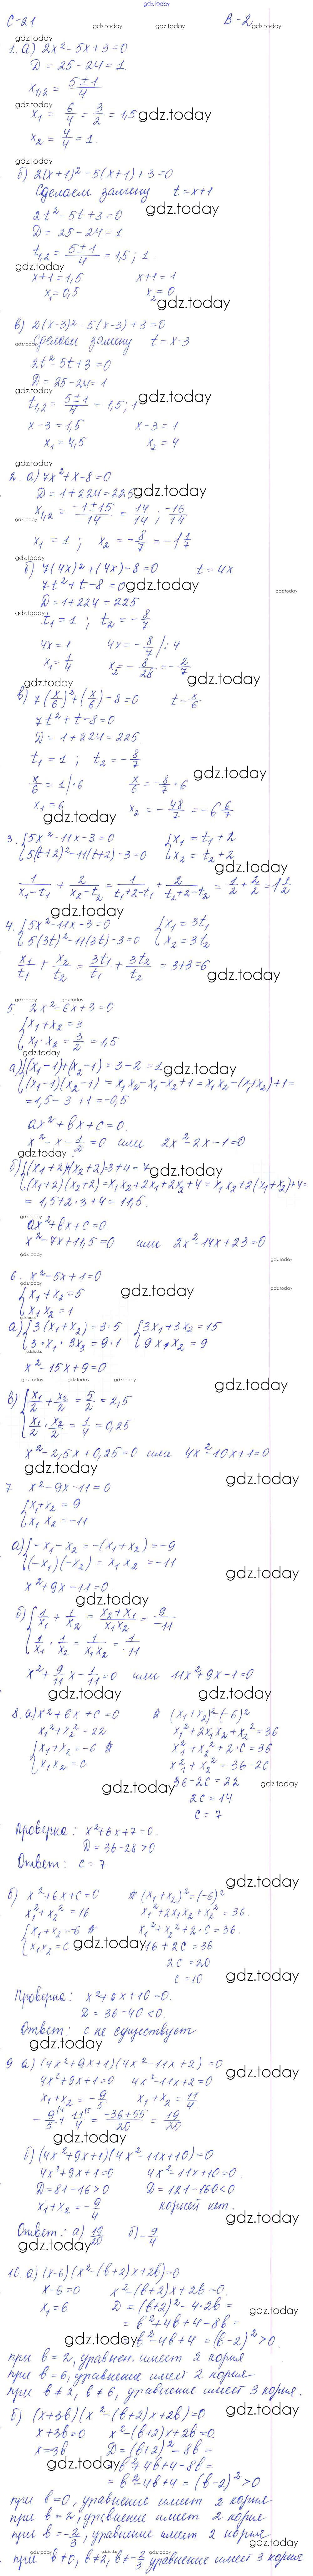 gdz.today
С-21 В-2
1. а) 2x² - 5x + 3 = 0
D = 25 - 24 = 1
x₁,₂ = (5±1)/4
x₁ = 6/4 = 3/2 = 1,5
x₂ = 4/4 = 1
б) 2(x+1)² - 5(x+1) + 3 = 0
Сделаем замену t = x+1
2t² - 5t + 3 = 0
D = 25 - 24 = 1
t₁,₂ = (5±1)/4 = 1,5; 1
x+1 = 1,5 x+1 = 1
x₁ = 0,5 x₂ = 0
в) 2(x-3)² - 5(x-3) + 3 = 0
Сделаем замену t = x-3
2t² - 5t + 3 = 0
D = 25 - 24 = 1
t₁,₂ = (5±1)/4 = 1,5; 1
x-3 = 1,5 x-3 = 1
x₁ = 4,5 x₂ = 4
2. а) 7x² + x - 8 = 0
D = 1 + 224 = 225
x₁,₂ = (-1±15)/14 = 14/14; -16/14
x₁ = 1; x₂ = -8/7 = -1 1/7
б) 7(4x)² + (4x) - 8 = 0 t = 4x
7t² + t - 8 = 0
D = 1 + 224 = 225
t₁ = 1; t₂ = -8/7
4x = 1 4x = -8/7 /:4
x₁ = 1/4 x₂ = -8/28 = -2/7
в) 7(x/6)² + (x/6) - 8 = 0 t = x/6
7t² + t - 8 = 0
D = 1 + 224 = 225
t₁ = 1; t₂ = -8/7
x/6 = 1 |·6 x/6 = -8/7 ·6
x₁ = 6 x₂ = -48/7 = -6 6/7
3. {5x² - 11x - 3 = 0 {x₁ = t₁ + 2
{5(t+2)² - 11(t+2) - 3 = 0 {x₂ = t₂ + 2
1/(x₁-t₁) + 2/(x₂-t₂) = 1/(t₁+2-t₁) + 2/(t₂+2-t₂) = 1/2 + 2/2 = 1 1/2
4. {5x² - 11x - 3 = 0 {x₁ = 3t₁
{5(3t)² - 11(3t) - 3 = 0 {x₂ = 3t₂
x₁/t₁ + x₂/t₂ = 3t₁/t₁ + 3t₂/t₂ = 3+3 = 6
5. 2x² - 6x + 3 = 0
{x₁ + x₂ = 3
{x₁ · x₂ = 3/2 = 1,5
а) {(x₁-1) + (x₂-1) = 3 - 2 = 1
{(x₁-1)(x₂-1) = x₁x₂ - x₁ - x₂ + 1 = x₁x₂ - (x₁+x₂) + 1 =
= 1,5 - 3 + 1 = -0,5
ax² + bx + c = 0.
x² - x - 1/2 = 0 или 2x² - 2x - 1 = 0
б) {(x₁+2)+(x₂+2) = 3+4 = 7
{(x₁+2)(x₂+2) = x₁x₂ + 2x₁ + 2x₂ + 4 = x₁x₂ + 2(x₁+x₂) + 4 =
= 1,5 + 2·3 + 4 = 11,5.
ax² + bx + c = 0.
x² - 7x + 11,5 = 0 или 2x² - 14x + 23 = 0
6. x² - 5x + 1 = 0
{x₁ + x₂ = 5
{x₁x₂ = 1
а) {3(x₁+x₂) = 3·5 {3x₁ + 3x₂ = 15
{3·x₁·3x₂ = 9·1 {9x₁x₂ = 9
x² - 15x + 9 = 0
в) {x₁/2 + x₂/2 = 5/2 = 2,5
{x₁/2 · x₂/2 = 1/4 = 0,25
x² - 2,5x + 0,25 = 0 или 4x² - 10x + 1 = 0
7 x² - 9x - 11 = 0
{x₁ + x₂ = 9
{x₁x₂ = -11
а) {-x₁ - x₂ = -(x₁+x₂) = -9
{(-x₁)(-x₂) = x₁x₂ = -11
x² + 9x - 11 = 0
б) {1/x₁ + 1/x₂ = (x₂+x₁)/(x₁x₂) = 9/-11
{1/x₁ · 1/x₂ = 1/(x₁x₂) = 1/-11
x² + 9/11 x - 1/11 = 0 или 11x² + 9x - 1 = 0
8. а) x² + 6x + c = 0 (x₁+x₂)² = (-6)²
x₁² + x₂² = 22 x₁² + 2x₁x₂ + x₂² = 36
{x₁ + x₂ = -6 x₁² + x₂² + 2·c = 36
{x₁x₂ = c x₁² + x₂² = 36 - 2c
36 - 2c = 22
2c = 14
c = 7
Проверка: x² + 6x + 7 = 0.
D = 36 - 28 > 0
Ответ: c = 7
б) x² + 6x + c = 0 (x₁+x₂)² = (-6)²
x₁² + x₂² = 16 x₁² + 2x₁x₂ + x₂² = 36.
{x₁ + x₂ = -6 x₁² + x₂² + 2·c = 36.
{x₁x₂ = c 16 + 2c = 36
2c = 20
c = 10
Проверка: x² + 6x + 10 = 0.
D = 36 - 40 < 0.
Ответ: c не существует
9 а) (4x² + 9x + 1)(4x² - 11x + 2) = 0
4x² + 9x + 1 = 0 4x² - 11x + 2 = 0
x₁ + x₂ = -9/5 x₁ + x₂ = 11/4
-9/5 + 11/4 = (-36+55)/20 = 19/20
б) (4x² + 9x + 1)(4x² - 11x + 10) = 0
4x² + 9x + 1 = 0 4x² - 11x + 10 = 0.
D = 81 - 16 > 0 D = 121 - 160 < 0
x₁ + x₂ = -9/4 корней нет.
Ответ: а) 19/20 б) -9/4
10. а) (x-6)(x² - (b+2)x + 2b) = 0
x - 6 = 0 x² - (b+2)x + 2b = 0.
x₁ = 6 D = (b+2)² - 4·2b =
= b² + 4b + 4 - 8b =
= b² - 4b + 4 = (b-2)² > 0.
при b = 2, уравнен. имеет 2 корня
при b = 6, уравнение имеет 2 корня.
при b ≠ 2, b ≠ 6, уравнение имеет 3 корня.
б) (x+3b)(x² - (b+2)x + 2b) = 0
x + 3b = 0 x² - (b+2)x + 2b = 0.
x = -3b D = (b+2)² - 8b =
= b² + 4b + 4 - 8b =
= b² - 4b + 4 = (b-2)² > 0
при b = 0, уравнение имеет 2 корня
при b = 2, уравнение имеет 2 корня
при b = -2/3, уравнение имеет 2 корня
при b ≠ 0, b ≠ 2, b ≠ -2/3 уравнение имеет 3 корня
gdz.today